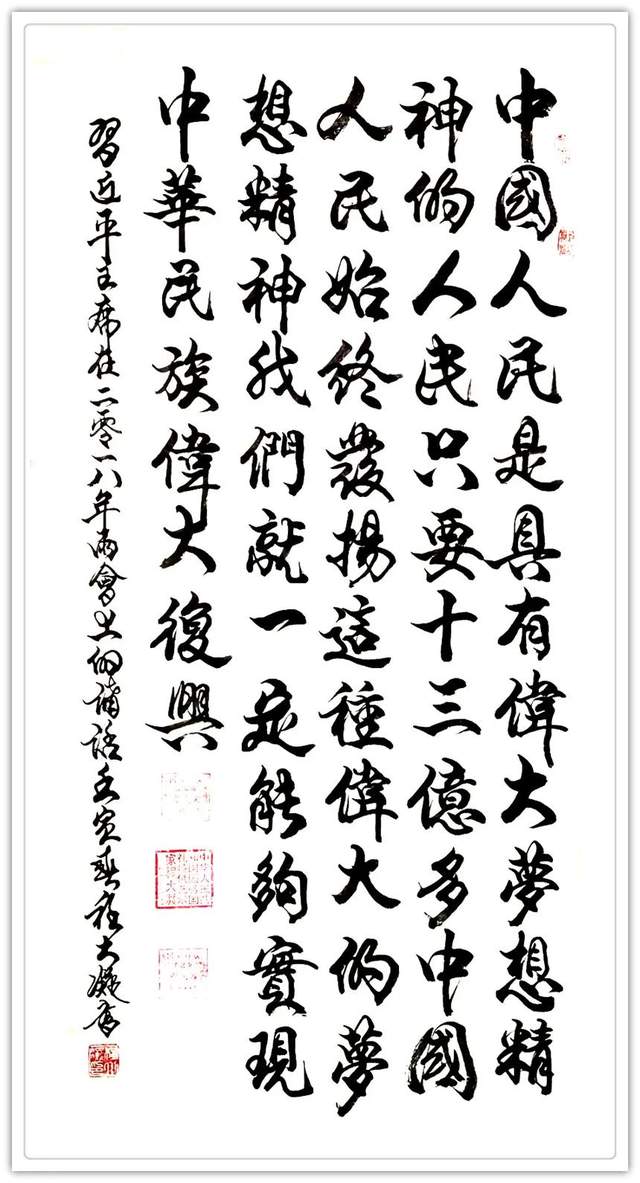 中國人民是具有偉大夢想精
神的人民只要十三億多中國
人民始終發揚這種偉大的夢
想精神我們就一定能夠實現
中華民族偉大復興
習近平主席在二零一八年兩會上的講話壬寅春